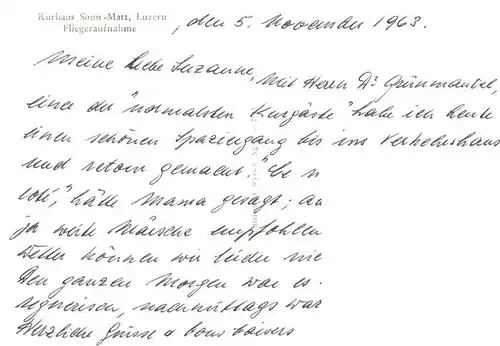 Kurhaus Sonn-Matt, Luzern
Fliegeraufnahme
, den 5. November 1963.
Meine liebe Suzanne,
Mit Herrn Dr. Grünmandel,
einer der "normalsten Kurgäste" habe ich heute
einen schönen Spaziergang bis ins Verkehrshaus
und retour gemacht. "C'e n
coté," hätte Mama gesagt; au
ja weite Märsche empfohlen
Wetter können wir leider nie
Den ganzen Morgen war es
regnerisch, nachmittags war
Herzliche Grüsse & bons baisers